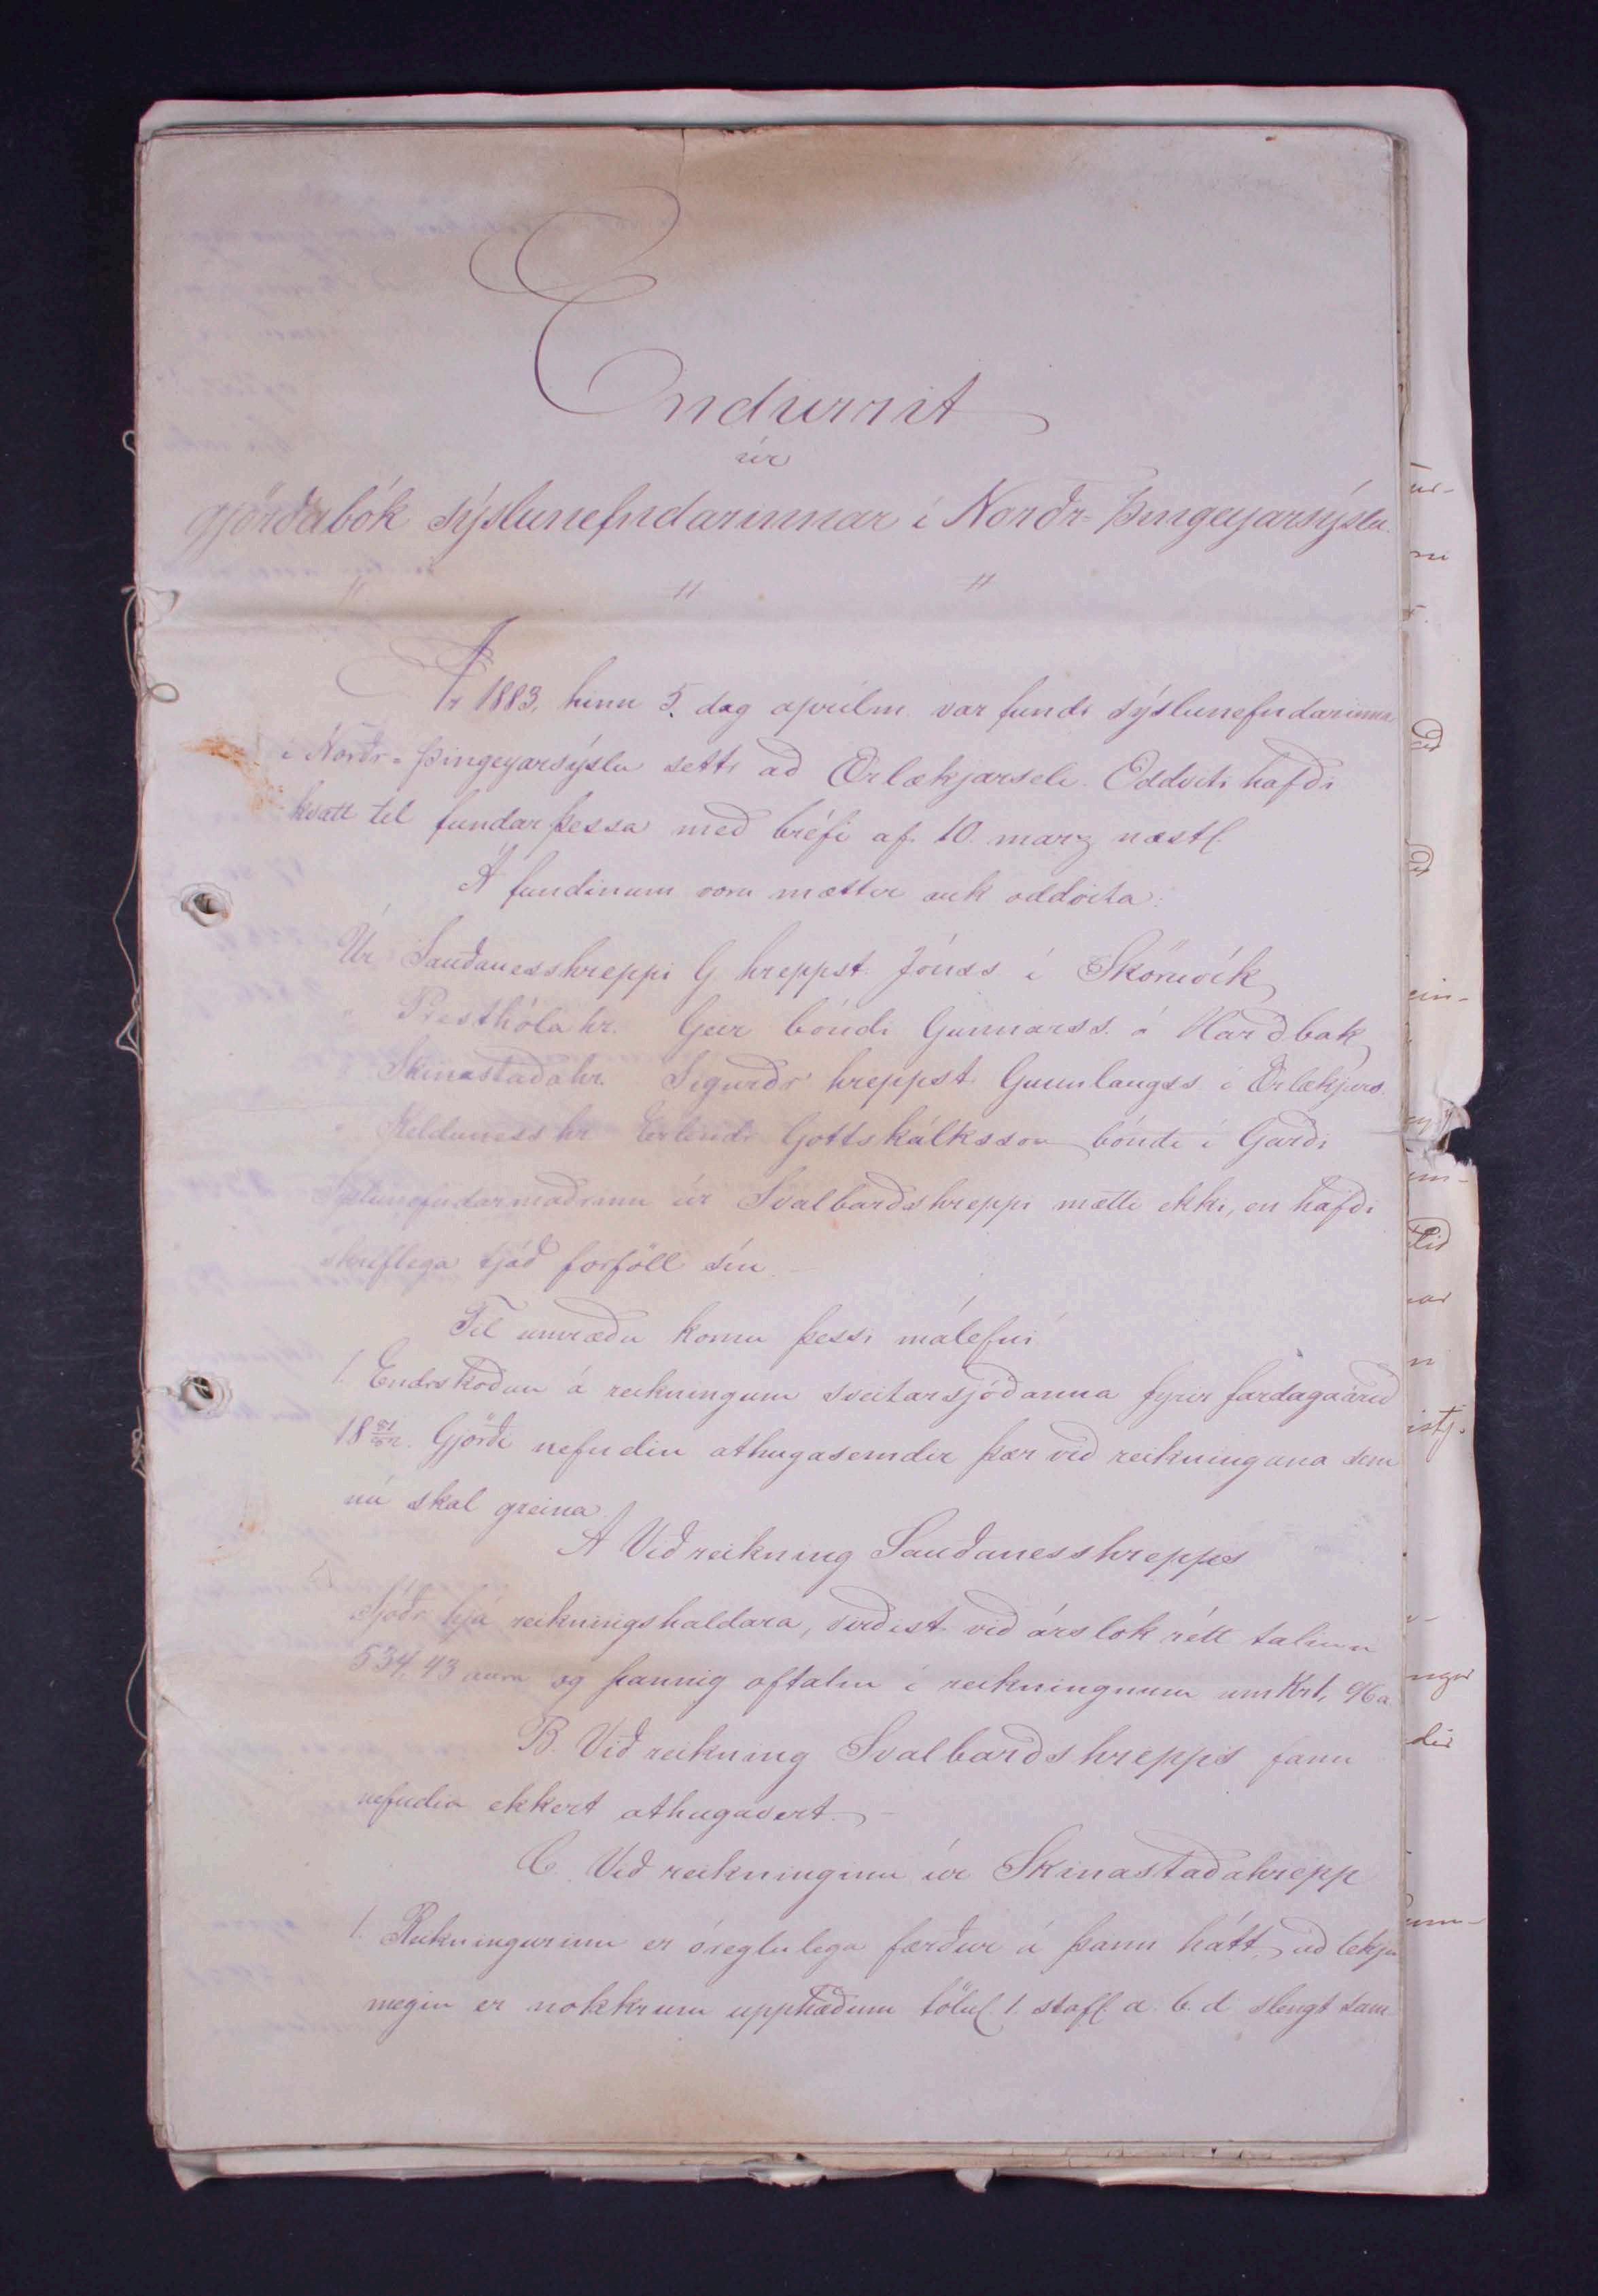 Endurrit
úr
gjörðabók sýslunefndarinnar í Norðr-Þingeyarsýslu.
" " "
Ár 1883, hinn 5. dag aprílm. var fundr sýslunefndarinnar
í Norðr-Þingeyarsýslu settr að Ærlækjarseli. Oddviti hafði
kvatt til fundar þessa með bréfi af 10. marz næstl.
Á fundinum voru mættir auk oddvita:
Úr Sauðanesshreppi G hreppst. Jónss í Skoruvík
" Presthólahr. Geir bóndi Gunnarss. á Harðbak
" Skinastaðahr. Sigurðr hreppst. Gunnlaugss í Ærlækjars.
" Kelduness hr Erlendr Gottskálksson bóndi í Garði
Sýslunefndarmaðrinn úr Svalbarðshreppi mætti ekki, en hafði
skriflega tjáð forföll sín. –
Til umræðu komu þessi málefni
1. Endrskoðun á reikningum sveitarsjóðanna fyrir fardagaárið
18 81/82. Gjörði nefndin athugasemdir þær við reikningana sem
nú skal greina
A Við reikning Sauðanesshrepps
Sjóðr hjá reikningshaldara, virðist við árslok rétt talinn
534, 43 aura og þannig oftalin í reikningnum um Kr 1, 96 a
B. Við reikning Svalbarðshrepps fann
nefndin ekkert athugavert. –
C. Við reikninginn úr Skinastaðahrepp
1. Reikningurinn er óreglulega færður á þann hátt, að tekju
megin er nokkrum upphæðum tölul. 1. stafl a. b. d slengt sam